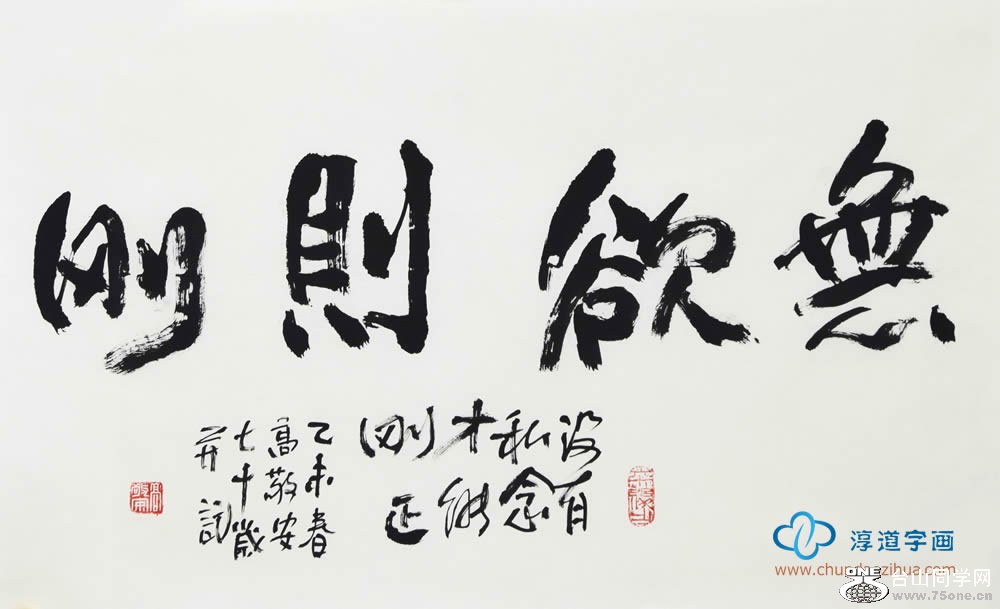 無欲則刚
没有
私念
才能
刚正
乙未春
高敬安
七十歲
并記
淳道字画
www.chundaozihua.com
ONE 台山同学网
www.75one.cn